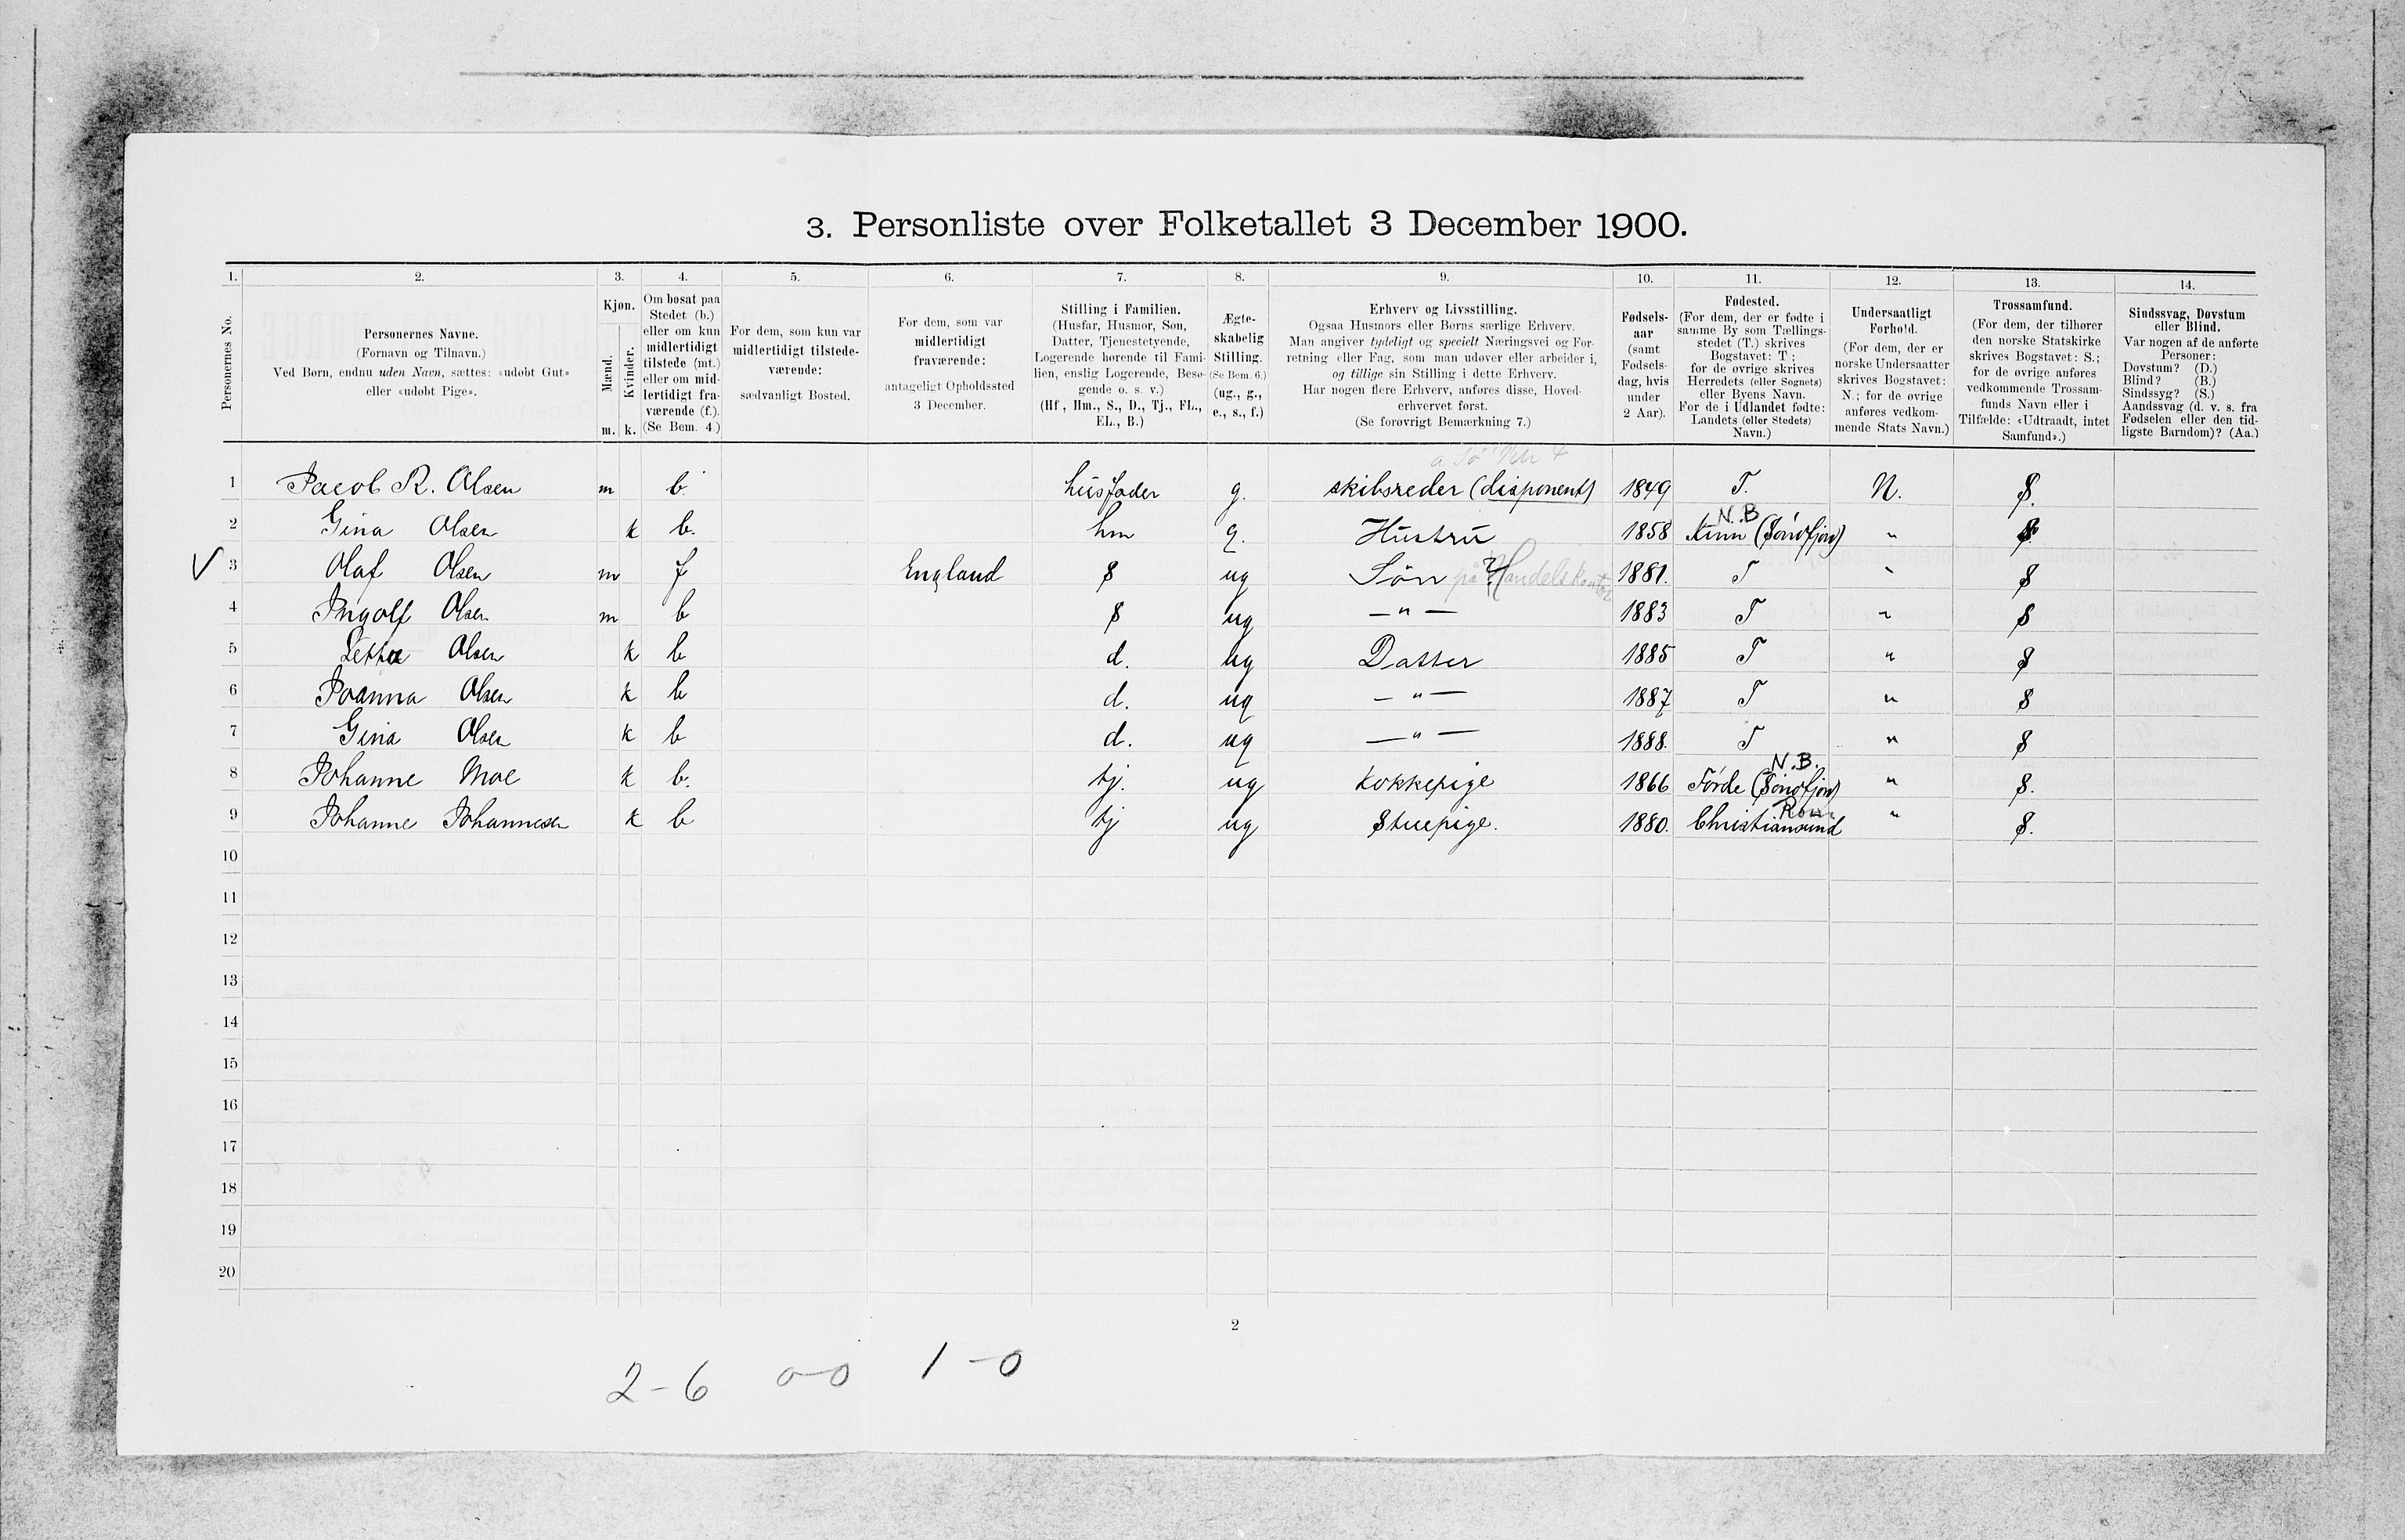 3. Personliste over Folketallet 3 December 1900.
1. 2. 3. 4. 5. 6. 7. 8. 9. 10. 11. 12. 13. 14.
Personernes No.
Personernes Navne.
(Fornavn og Tilnavn.)
Ved Børn, endnu uden Navn, sættes: «udøbt Gut»
eller «udøbt Pige».
Kjøn.
Mænd.
Kvinder.
m. k.
Om bosat paa
Stedet (b.)
eller om kun
midlertidigt
tilstede (mt.)
eller om mid-
lertidigt fra-
værende (f.).
(Se Bem. 4.)
For dem, som kun var
midlertidigt tilstede-
værende:
sædvanligt Bosted.
For dem, som var
midlertidigt
fraværende:
antageligt Opholdssted
3 December.
Stilling i Familien.
(Husfar, Husmor, Søn,
Datter, Tjenestetyende,
Logerende hørende til Fami-
lien, enslig Logerende, Besø-
gende o. s. v.)
(Hf., Hm., S., D., Tj., FL.,
EL., B.)
Ægte-
skabelig
Stilling.
(Se Bem. 6.)
(ug., g.,
e., s., f.)
Erhverv og Livsstilling.
Ogsaa Husmors eller Børns særlige Erhverv.
Man angiver tydeligt og specielt Næringsvei og For-
retning eller Fag, som man udøver eller arbeider i,
og tillige sin Stilling i dette Erhverv.
Har nogen flere Erhverv, anføres disse, Hoved-
erhvervet først.
(Se forøvrigt Bemærkning 7.)
Fødsels-
aar
(samt
Fødsels-
dag, hvis
under
2 Aar).
Fødested.
(For dem, der er fødte i
samme By som Tællings-
stedet (T.) skrives
Bogstavet: T.;
for de øvrige skrives
Herredets (eller Sognets)
eller Byens Navn.
For de i Udlandet fødte:
Landets (eller Stedets)
Navn.)
Undersaatligt
Forhold.
(For dem, der er
norske Undersaatter
skrives Bogstavet:
N.; for de øvrige
anføres vedkom-
mende Stats Navn.)
Trossamfund.
(For dem, der tilhører
den norske Statskirke
skrives Bogstavet: S.;
for de øvrige anføres
vedkommende Trossam-
funds Navn eller i
Tilfælde: «Udtraadt, intet
Samfund».)
Sindssvag, Døvstum
eller Blind.
Var nogen af de anførte
Personer:
Døvstum? (D.)
Blind? (B.)
Sindssyg? (S.)
Aandssvag (d. v. s. fra
Fødselen eller den tid-
ligste Barndom)? (Aa.)
1 Jacob R. Olsen m b. husfader g. skibsreder (disponent) 1849 T. N. S.
N.B
2 Gina Olsen k b. hm g. Hustru 1858 Kinn (Søndfjord) " S.
✓ 3 Olaf Olsen m f England S ug Søn ? på Handelskontor 1881. T " S
4 Ingolf Olsen m b S ug — " — 1883 T " S
5 Olsen k b d. ug Datter 1885 T " S
6 Joanna Olsen k b d. ug — " — 1887 T " S
7 Gina Olsen k b d. ug — " — 1888. T " S
N.B.
8 Johanne Moe k b. tj. ug Kokkepige 1866 Førde (Søndfjord) " S.
Rom.
9 Johanne Johannesen k b tj ug Stuepige. 1880. Christiansund " S.
10
11
12
13
14
15
16
17
18
19
20
2
2-6 0-0 1-0